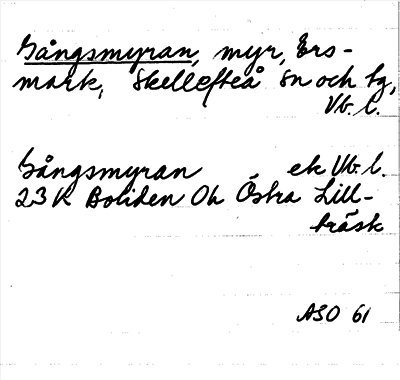 Gångsmyran, myr, Ers-
mark, Skellefteå sn och tg,
Vb. l.
Gångsmyran ek Vb. l.
23 K Boliden 0h Östra Lill-
träsk
ASO 61